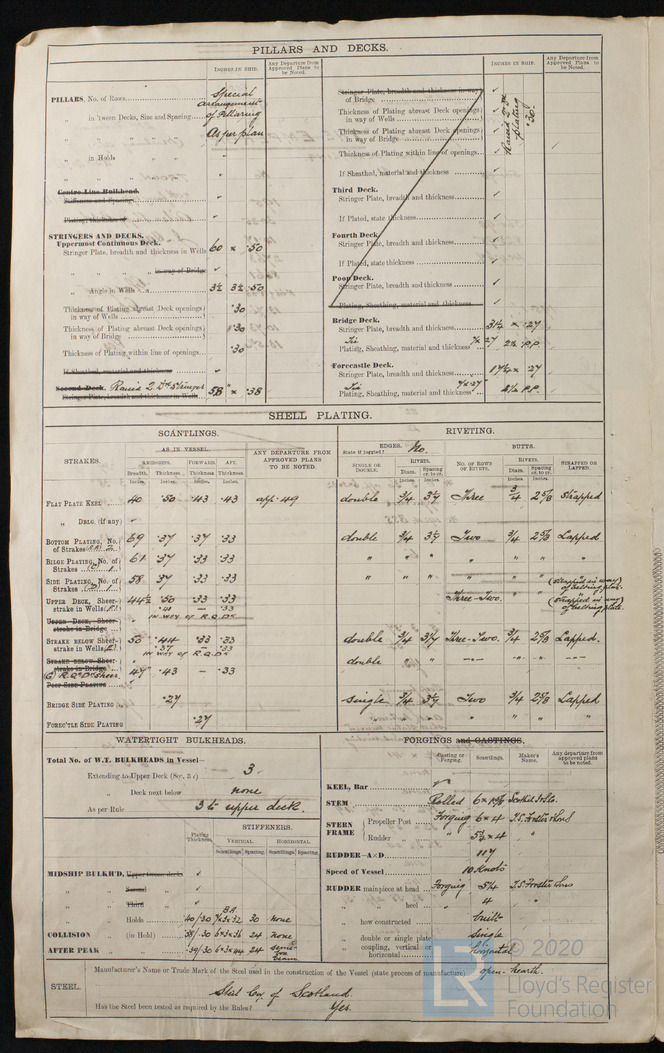 PILLARS AND DECKS.
INCHES IN SHIP.
Any Departure from Approved Plans to be Noted.
PILLARS, No. of Rows
Special arrangement of Pillaring
„ in 'tween Decks, Size and Spacing
As per plan
„ in Holds „ „
Centre Line Bulkhead.
Stiffeners and Spacing
Plating, thickness of
STRINGERS AND DECKS.
Uppermost Continuous Deck.
Stringer Plate, breadth and thickness in Wells 60 x .50
„ „ „ „ in way of Bridge
„ Angle in Wells 3½ 3½ .50
Thickness of Plating abreast Deck openings in way of Wells .30
Thickness of Plating abreast Deck openings in way of Bridge .30
Thickness of Plating within line of openings .30
If Sheathed, material and thickness
Second Deck. Raised 2 Dk Stringer
Stringer Plate, breadth and thickness in Wells 58" x .38
INCHES IN SHIP.
Any Departure from Approved Plans to be Noted.
Stringer Plate, breadth and thickness in way of Bridge
Thickness of Plating abreast Deck openings in way of Wells
Thickness of Plating abreast Deck openings in way of Bridge
Thickness of Plating within line of openings
If Sheathed, material and thickness
plating .30
Third Deck.
Stringer Plate, breadth and thickness
If Plated, state thickness
Fourth Deck.
Stringer Plate, breadth and thickness
If Plated, state thickness
Poop Deck.
Stringer Plate, breadth and thickness
Plating, Sheathing, material and thickness
Bridge Deck.
Stringer Plate, breadth and thickness 31½ x .27
Plating, Sheathing, material and thickness 2½ P.P.
Forecastle Deck.
Stringer Plate, breadth and thickness 17½ x .27
Plating, Sheathing, material and thickness 2½ P.P.
SHELL PLATING.
SCANTLINGS.
RIVETING.
STRAKES.
AS IN VESSEL.
AMIDSHIPS. FORWARD. AFT.
Breadth. Thickness. Thickness Thickness
Inches. Inches. Inches. Inches.
ANY DEPARTURE FROM APPROVED PLANS TO BE NOTED.
EDGES. No.
State if joggled?
SINGLE OR DOUBLE.
RIVETS.
Diam. Spacing cr. to cr.
Inches. Inches.
BUTTS.
NO. OF ROWS OF RIVETS.
RIVETS.
Diam. Spacing cr. to cr.
Inches. Inches.
STRAPPED OR LAPPED.
FLAT PLATE KEEL 40 .50 .43 .43 app .49 double ¾ 3⅜ Three ¾ 2⅝ Strapped
„ DBLG. (if any)
BOTTOM PLATING, No. of Strakes 69 .37 .37 .33 double ¾ 3⅜ Two ¾ 2⅝ Lapped
BILGE PLATING, No. of Strakes 61 .37 .33 .33 " " " " " " "
SIDE PLATING, No. of Strakes 58 .37 .33 .33 " " " " "
(strapped in way)
UPPER DECK, Sheerstrake in Wells 44½ .50 .33 .33 Three-Two. (strapped in way)
.41 — .33
in way of R.Q.Dk
UPPER DECK, Sheerstrake in Bridge
STRAKE BELOW Sheerstrake in Wells 50 .44 .33 .33 double ¾ 3⅜ Three-Two. ¾ 2⅝ Lapped.
.37 — .33
in way of R.Q.Dk
STRAKE BELOW Sheerstrake in Bridge
R.Q.Dk Sheer 47" .43 — .33 double " "
POOP SIDE PLATING
BRIDGE SIDE PLATING .27 single ¾ 3⅜ Two ¾ 2⅝ Lapped
FOREC'TLE SIDE PLATING .27 " " " "
WATERTIGHT BULKHEADS.
Total No. of W.T. BULKHEADS in Vessel—
Extending to Upper Deck (Sec. 3 c) 3.
„ Deck next below none
As per Rule 3 to upper deck.
Plating Thickness
STIFFENERS.
VERTICAL HORIZONTAL
Scantlings Spacing Scantlings Spacing
MIDSHIP BULKH'D, Upper tween decks
„ „ Second „
„ „ Third „
B.A.
„ „ Holds .40/.30 30 none
COLLISION „ (in Hold) .38/.30 24 none
AFTER PEAK „ „ .39/.30 6x3x.44 24
FORGINGS and CASTINGS.
Casting or Forging. Scantlings. Maker's Name. Any departure from approved plans to be noted.
KEEL, Bar
STEM Rolled
STERN FRAME { Propeller Post Forging 6 x 4
Rudder „ " 5½ x 4 "
RUDDER—A×D 117
Speed of Vessel 10 Knots
RUDDER mainpiece at head Forging 5¼
„ „ heel " 4 "
„ how constructed built
„ double or single plate single
„ coupling, vertical or horizontal horizontal
STEEL.
Manufacturer's Name or Trade Mark of the Steel used in the construction of the Vessel (state process of manufacture) open-hearth.
Steel Coy. of Scotland.
Has the Steel been tested as required by the Rules? Yes.
LR
© 2020
Lloyd's Register
Foundation